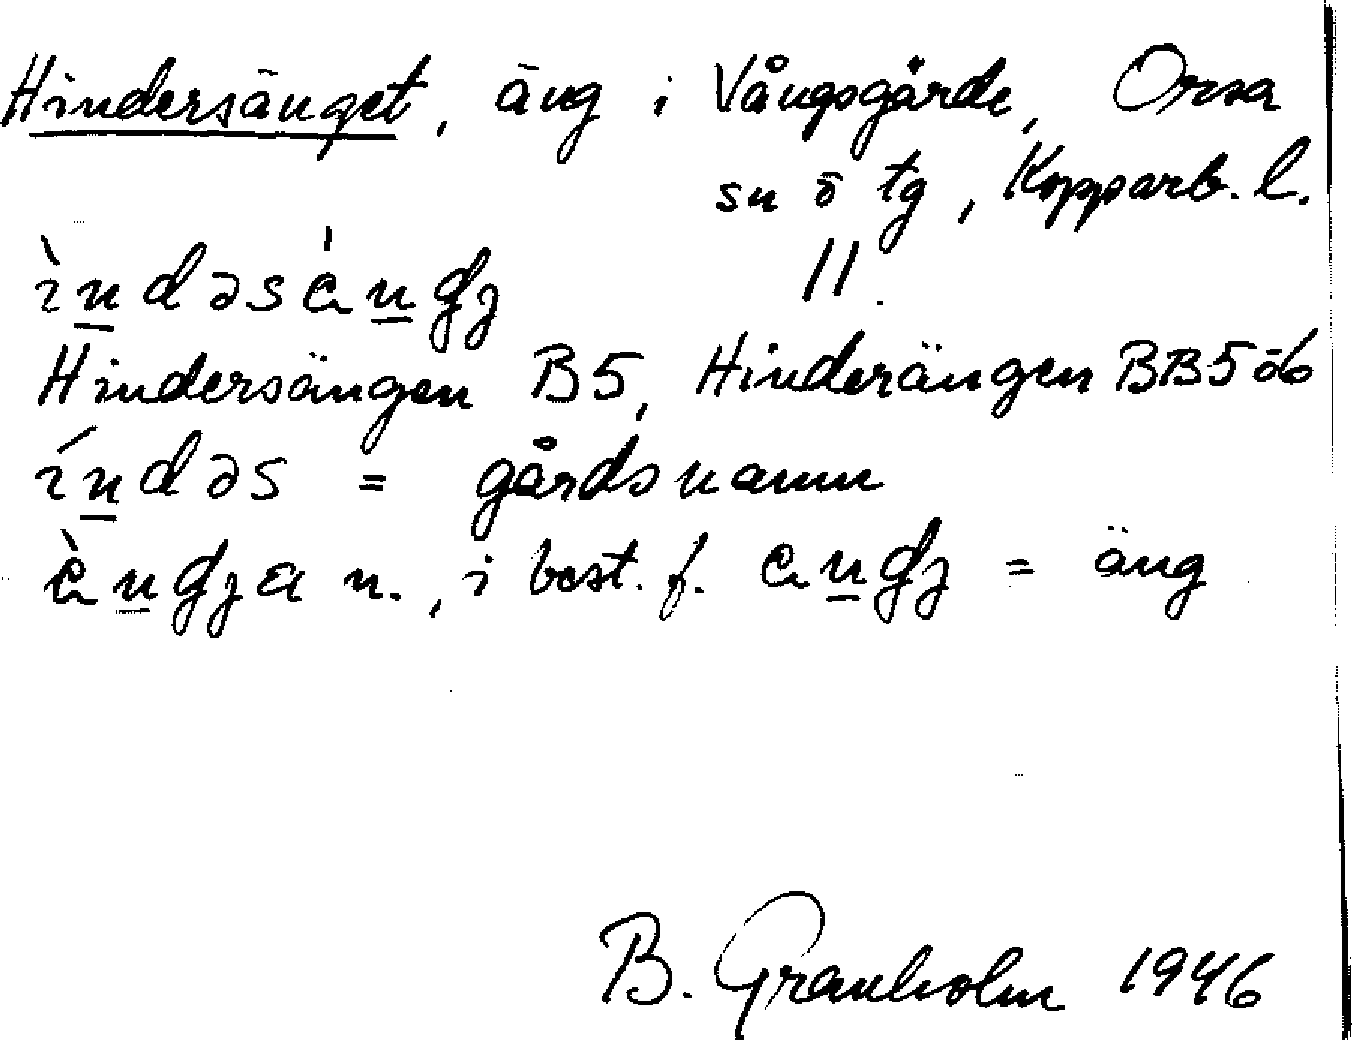 Hindersänget, äng i Vångsgärde, Orsa
sn o tg, Kopparb. l.
ìndəsàngʒ 11.
Hindersängen B5, Hinderängen BB5 o 6
índəs = gårdsnamn
àngʒa n., i best. f. angʒ = äng
B. Granholm 1946